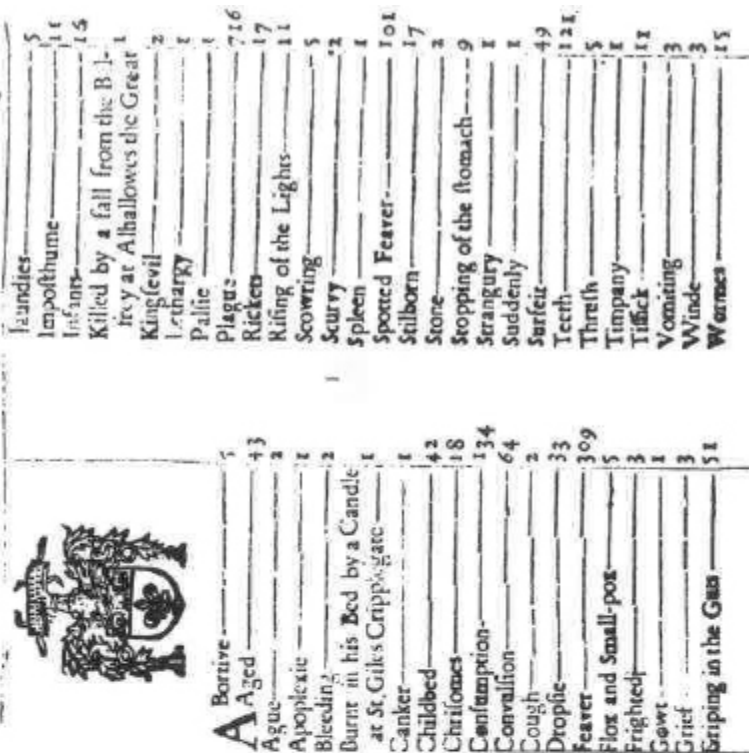 ABortive 5
Aged 43
Ague 2
Apoplexie 1
Bleeding 2
Burnt in his Bed by a Candle
at St. Giles Cripplegate 1
Canker 1
Childbed 42
Chriſomes 18
Conſumption 134
Convulſion 64
Cough 2
Dropſie 33
Feaver 309
Flox and Small-pox 5
Frighted 3
Gowt 1
Grief 3
Griping in the Guts 51
Jaundies 5
Impoſthume 11
Infants 16
Killed by a fall from the Bel-
frey at Alhallowes the Great 1
Kingſevil 2
Lethargy 1
Palſie 1
Plague 716
Rickets 17
Riſing of the Lights 11
Scowring 5
Scurvy 2
Spleen 1
Spotted Feaver 101
Stilborn 17
Stone 2
Stopping of the ſtomach 9
Strangury 1
Suddenly 1
Surfeit 49
Teeth 121
Thruſh 5
Timpany 1
Tiſſick 11
Vomiting 3
Winde 3
Wormes 15